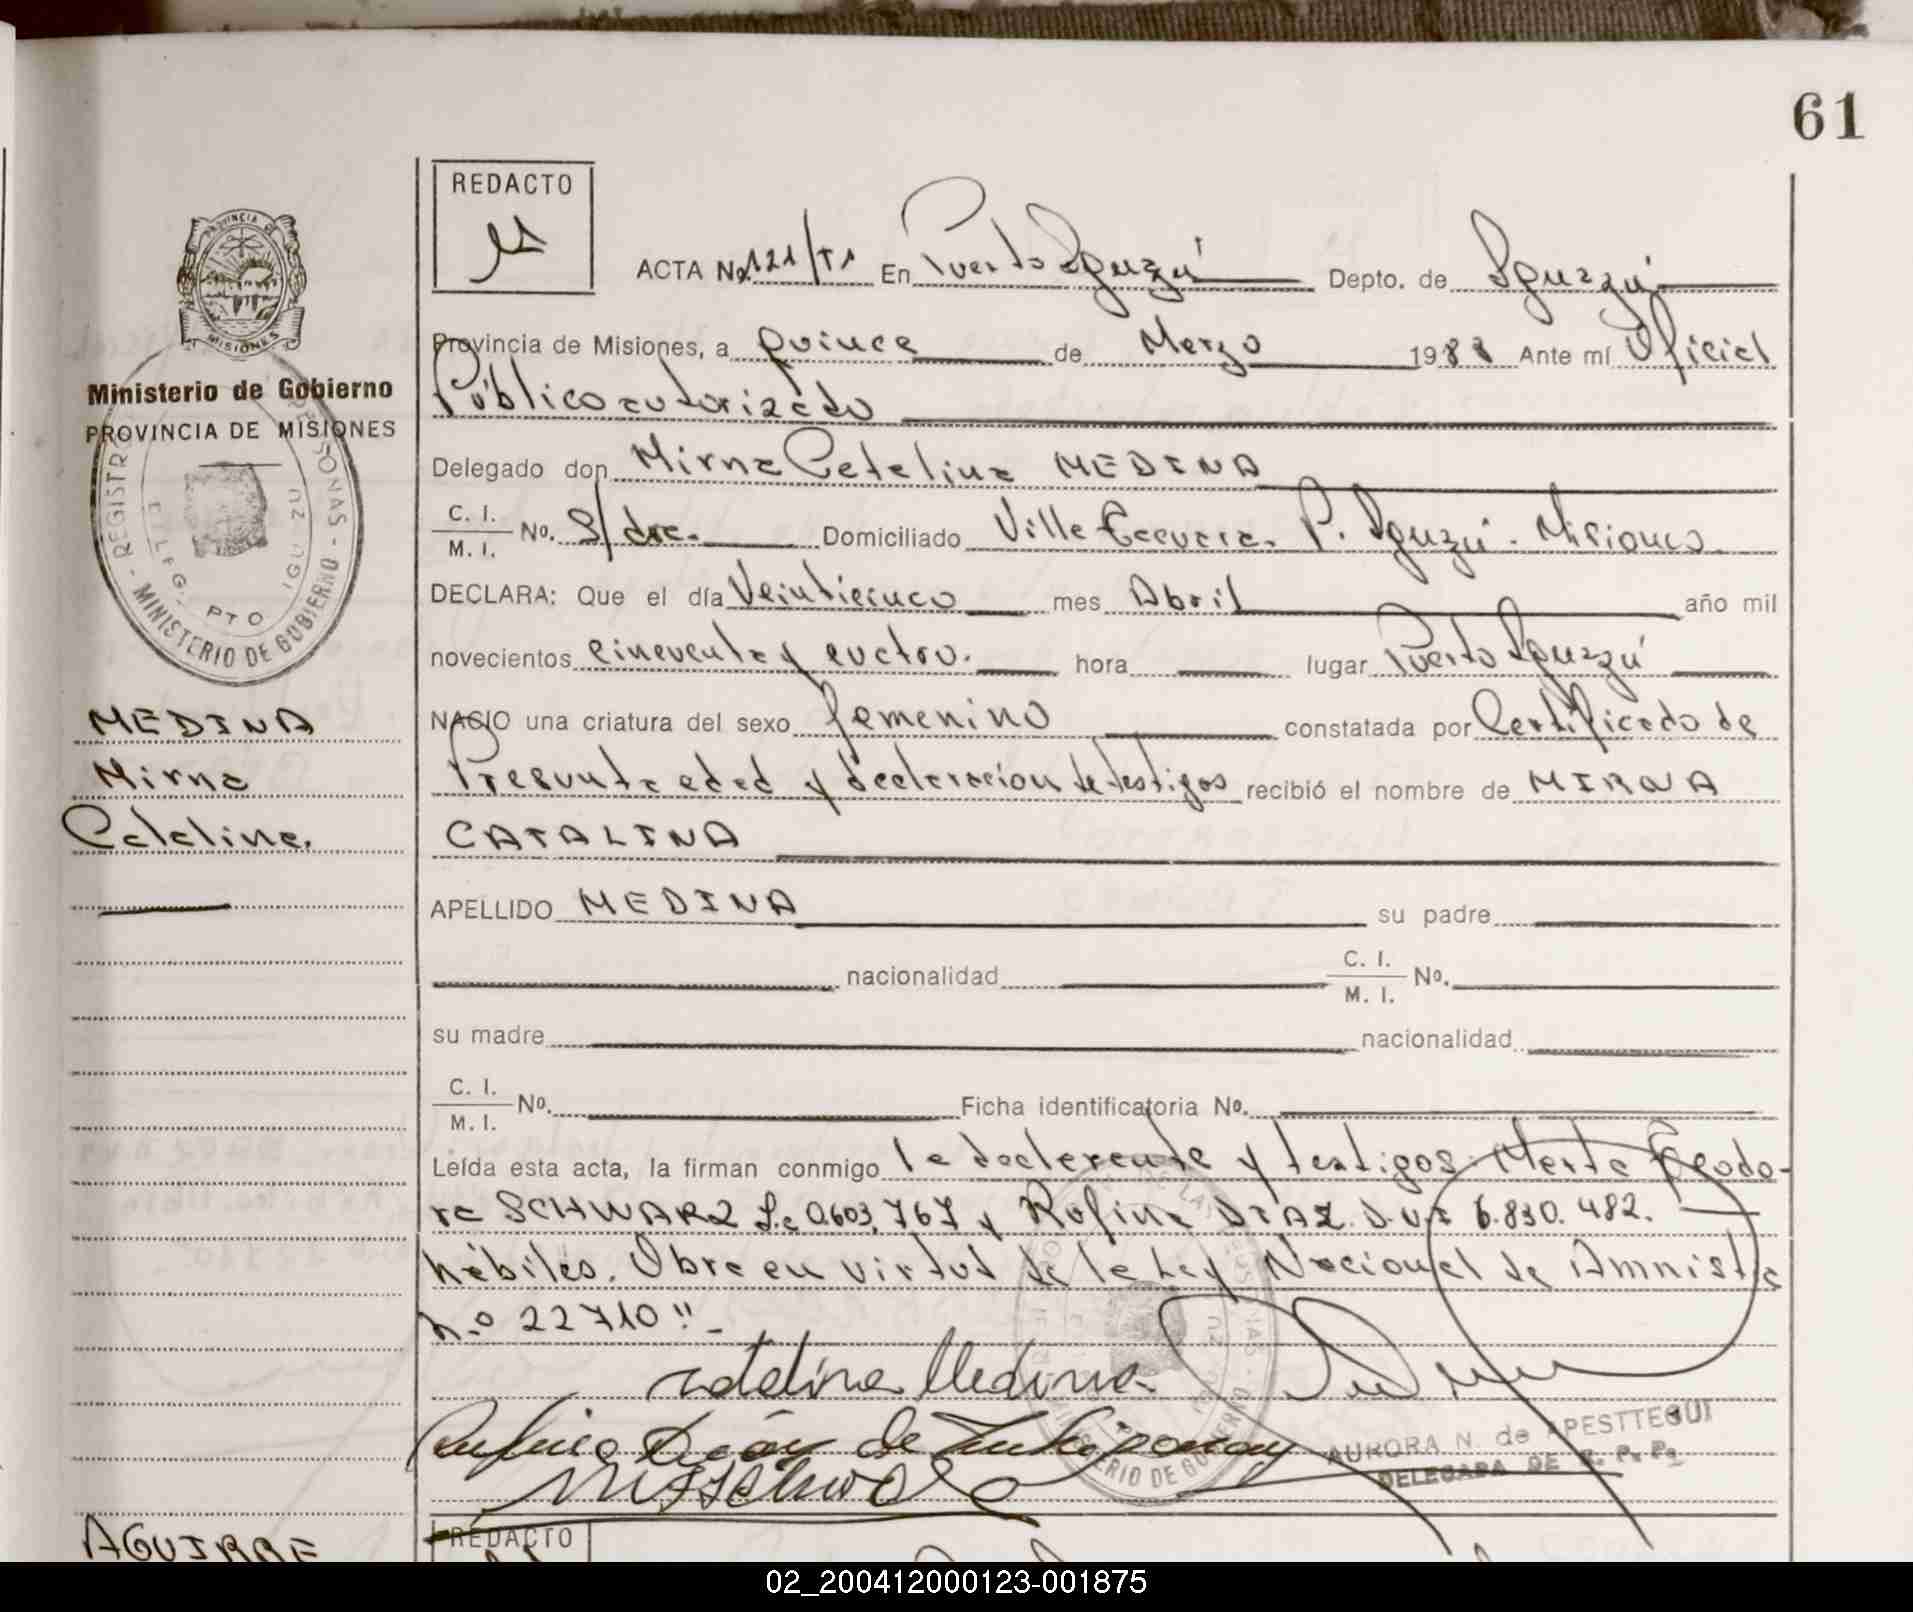 61
REDACTO
ACTA No. 121/T1 En Puerto Iguazú Depto. de Iguazú
PROVINCIA DE
MISIONES
Provincia de Misiones, a quince de Marzo 1988 Ante mí Oficial
Ministerio de Gobierno
PROVINCIA DE MISIONES
Público autorizado
Delegado don Mirna Catalina MEDINA
C. I.
M. I. No. S/doc. Domiciliado Villa P. Iguazú. Misiones.
REGISTRO PERSONAS - MINISTERIO DE GOBIERNO -
DELEG. PTO IGUAZU
DECLARA: Que el día Veinticinco mes Abril año mil
novecientos cincuenta y cuatro. hora lugar Puerto Iguazú
MEDINA
Mirna
Catalina.
NACIO una criatura del sexo femenino constatada por Certificado de
Presunta edad y declaración de testigos recibió el nombre de MIRNA
CATALINA
APELLIDO MEDINA su padre
nacionalidad C. I.
M. I. No.
su madre nacionalidad
C. I.
M. I. No. Ficha identificatoria No.
Leída esta acta, la firman conmigo la declarante y testigos. Marta Teodo-
ra SCHWARZ L.c 0.603.767 y Rufina DIAZ. D.N.I 6.830.482.
hábiles. Obra en virtud de la Ley Nacional de Amnistía
n.o 22710"-
Catalina Medina
Rufina Díaz de
MTSchwarz
AURORA N. de APESTTEGUI
DELEGADA DE R. P. Ps
AGUIRRE
REDACTO
02_200412000123-001875